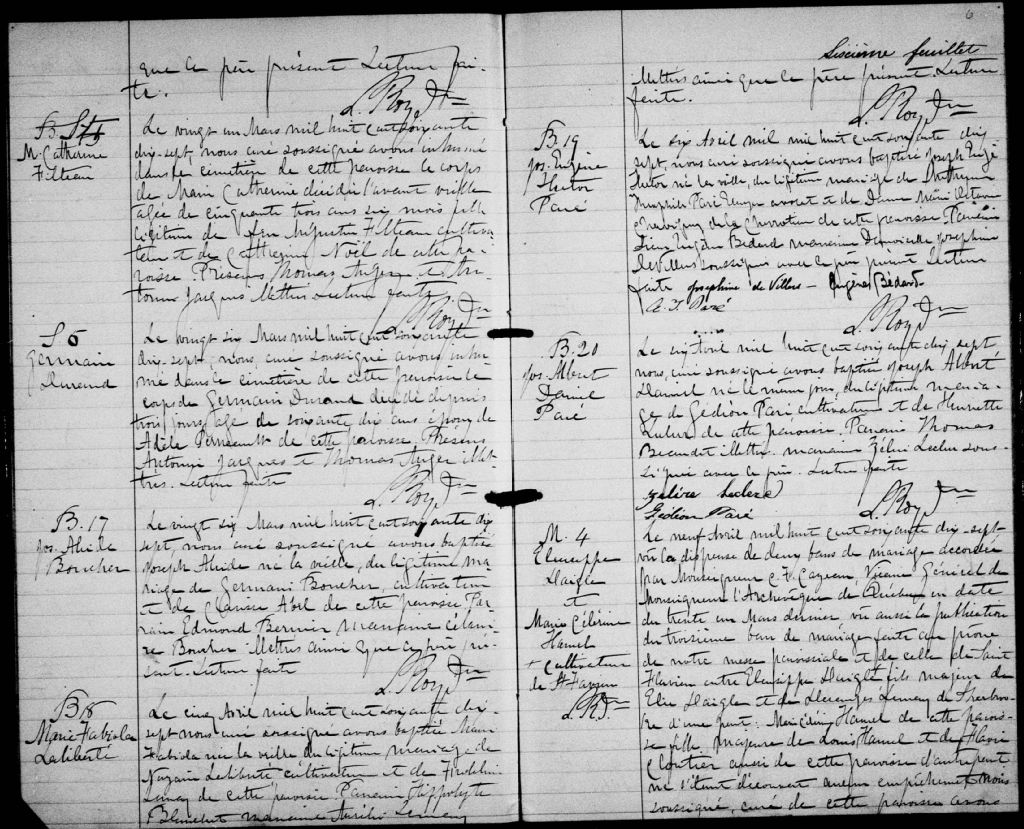 que le père présent Lecture fai-
te.
L. Roy Ptre
S. 5
M. Catherine
Filteau
Le vingt un Mars mil huit cent soixante
dix-sept, nous curé soussigné avons inhumé
dans le cimetière de cette paroisse le corps
de Marie Catherine décédée l'avant veille
agée de cinquante trois ans six mois fille
légitime de feu Augustin Filteau cultiva-
teur et de Catherine Noël de cette pa-
roisse Présens Thomas Auger et An-
toine Jacques Mettres Lecture faite.
L. Roy Ptre
S 6
Germain
Durand
Le vingt six Mars mil huit cent soixante
dix-sept, nous, curé soussigné avons inhu-
mé dans le cimetière de cette paroisse le
corps de Germain Durand décédé depuis
trois jours agé de soixante dix ans époux de
Adèle Perreault de cette paroisse. Présens
Antoine Jacques et Thomas Auger illet-
trés. Lecture faite
L. Roy Ptre
B. 17
Jos. Alcide
Boucher
Le vingt six Mars mil huit cent soixante dix
sept, nous curé soussigné avons baptisé
Joseph Alcide né la veille, du légitime ma-
riage de Germain Boucher cultivateur
et de de cette paroisse Par-
rain Edmond Bernier marraine
Boucher Mettres ainsi que le père pré-
sent. Lecture faite
L. Roy Ptre
B 18
Marie Fabiola
Laliberté
Le cinq Avril mil huit cent soixante dix-
sept nous curé soussigné avons baptisé Marie
Fabiola née la veille du légitime mariage de
Nazaire Laliberté cultivateur et de
Lemay de cette paroisse Parrain Hippolyte
marraine Lemay
6
Sixième feuillet
Mettres ainsi que le père présent Lecture
faite.
L. Roy Ptre
B. 19
Jos. Eugène
Hector
Paré
Le six Avril mil huit cent soixante dix
sept, nous curé soussigné avons baptisé Joseph Eugè
Hector né la veille, du légitime mariage de
Paré avocat et de Dame
de cette paroisse Parrain
Sieur Eugène Bédard marraine Demoiselle Joséphine
de Villers soussignés avec le père présent Lecture
faite Joséphine de Villers - Eugène Bédard
Paré
L. Roy Ptre
B. 20
Jos. Albert
Daniel
Paré
Le six Avril mil huit cent soixante dix sept
nous, curé soussigné avons baptisé Joseph Albert
Daniel né le même jour, du légitime maria-
ge de Gédéon Paré cultivateur et de Henriette
Leclerc de cette paroisse. Parrain Thomas
marraine Leclerc sous-
signée avec le père. Lecture faite
Leclerc
Gédéon Paré
L. Roy Ptre
M. 4
Eleusippe
Daigle
et
Marie Célérine
Hamel
+ cultivateur
de St Flavien
L. R. Ptre
Le neuf Avril mil huit cent soixante dix-sept
vu la dispense de deux bans de mariage accordée
par Monseigneur C. F. Cazeau, Vicaire Général de
Monseigneur l'Archevêque de Québec en date
du trente un Mars dernier, vu aussi la publication
du troisième ban de mariage faite au prône
de notre messe paroissiale et de celle de Saint
Flavien entre Eleusippe Daigle fils majeur de
Daigle et de Lemay de
d'une part; Marie Hamel de cette parois-
se fille majeure de Louis Hamel et de
Cloutier aussi de cette paroisse d'autre part
ne s'étant découvert aucun empêchement nous
soussigné, curé de cette paroisse avons